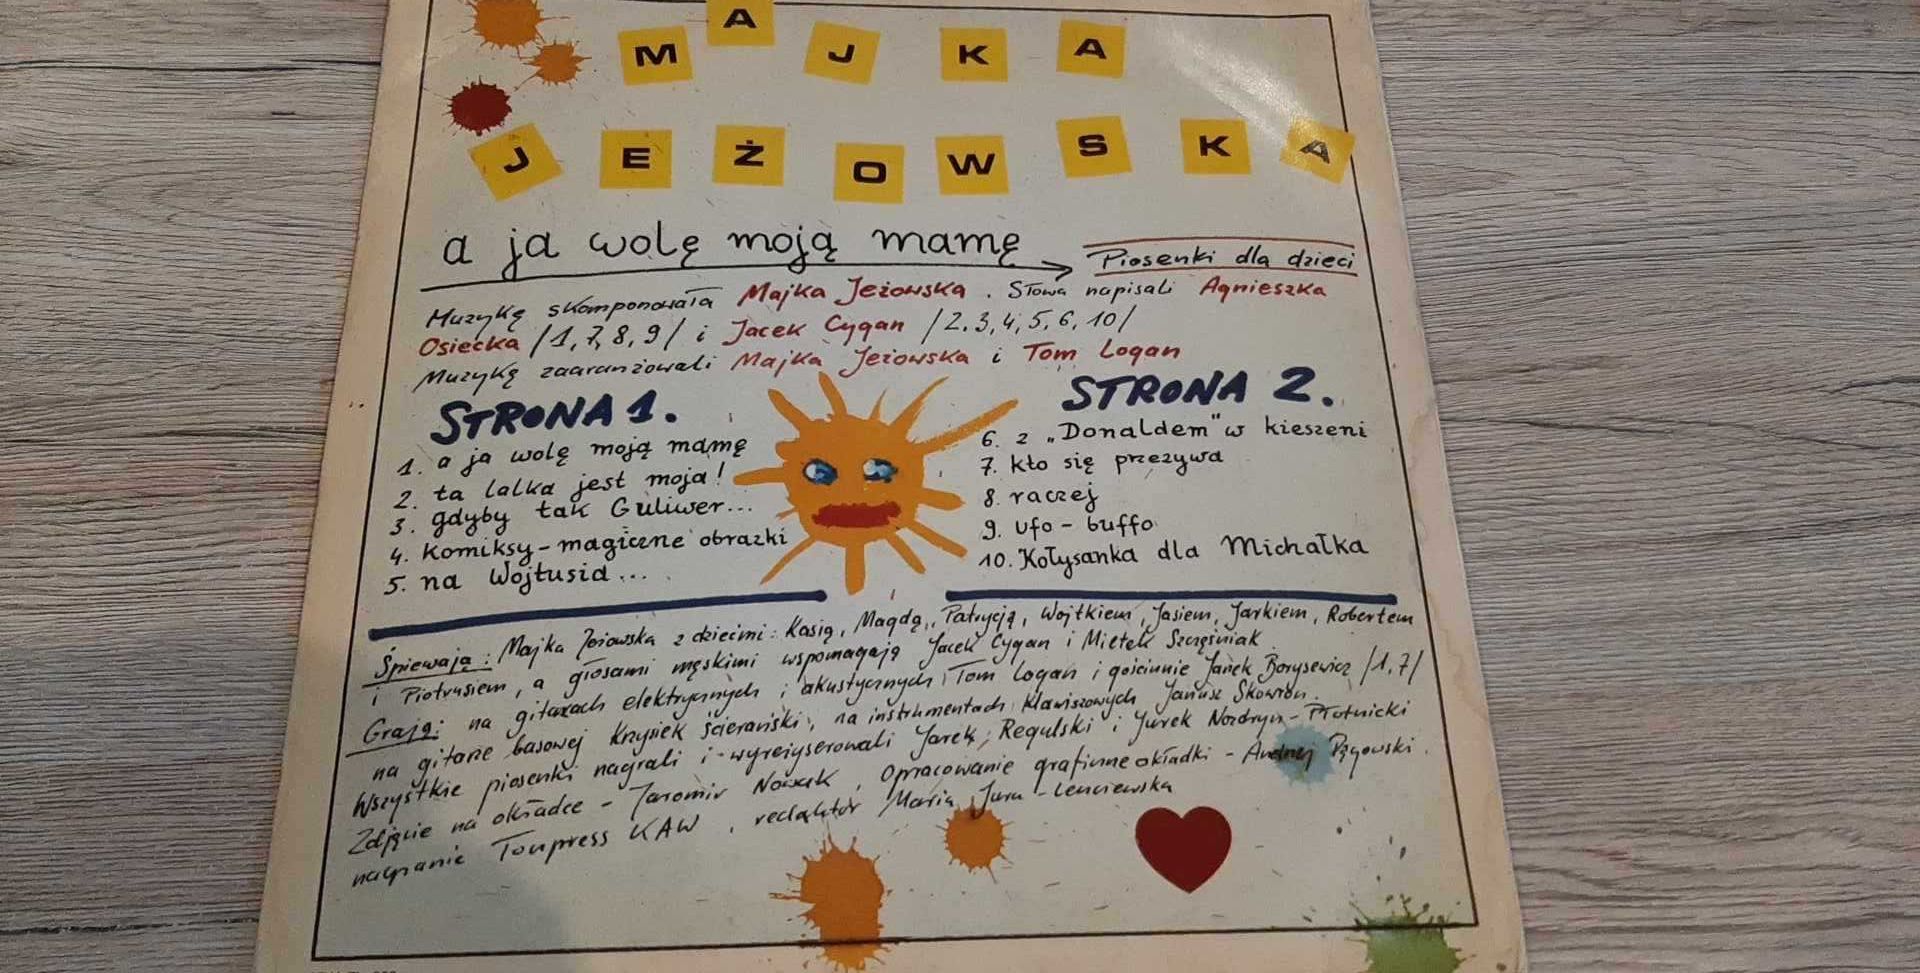 MAJKA
JEŻOWSKA
a ja wolę moją mamę
Piosenki dla dzieci
Muzykę skomponowała Majka Jeżowska. Słowa napisali Agnieszka
Osiecka /1,7,8,9/ i Jacek Cygan /2,3,4,5,6,10/
Muzykę zaaranżowali Majka Jeżowska i Tom Logan
STRONA 1.
1. a ja wolę moją mamę
2. ta lalka jest moja!
3. gdyby tak Guliwer...
4. Komiksy-magiczne obrazki
5. na Wojtusia...
STRONA 2.
6. z „Donaldem" w kieszeni
7. kto się przezywa
8. raczej
9. ufo-buffo
10. Kołysanka dla Michałka
Śpiewają: Majka Jeżowska z dziećmi: Kasią, Magdą, Patrycją, Wojtkiem, Jasiem, Jarkiem, Robertem
i Piotrusiem, a głosami męskimi wspomagają Jacek Cygan i Mietek Szcześniak
Grają: na gitarach elektrycznych i akustycznych Tom Logan i gościnnie Janek Borysewicz /1,7/
na gitarze basowej Krzysiek Ścierański, na instrumentach klawiszowych Janusz Skowron.
Wszystkie piosenki nagrali i wyreżyserowali Jarek Regulski i Jurek Nordryn-Płotnicki
Zdjęcie na okładce - Jaromir Nowak, opracowanie graficzne okładki - Andrzej
nagranie Tonpress KAW, redaktor Maria Jura-